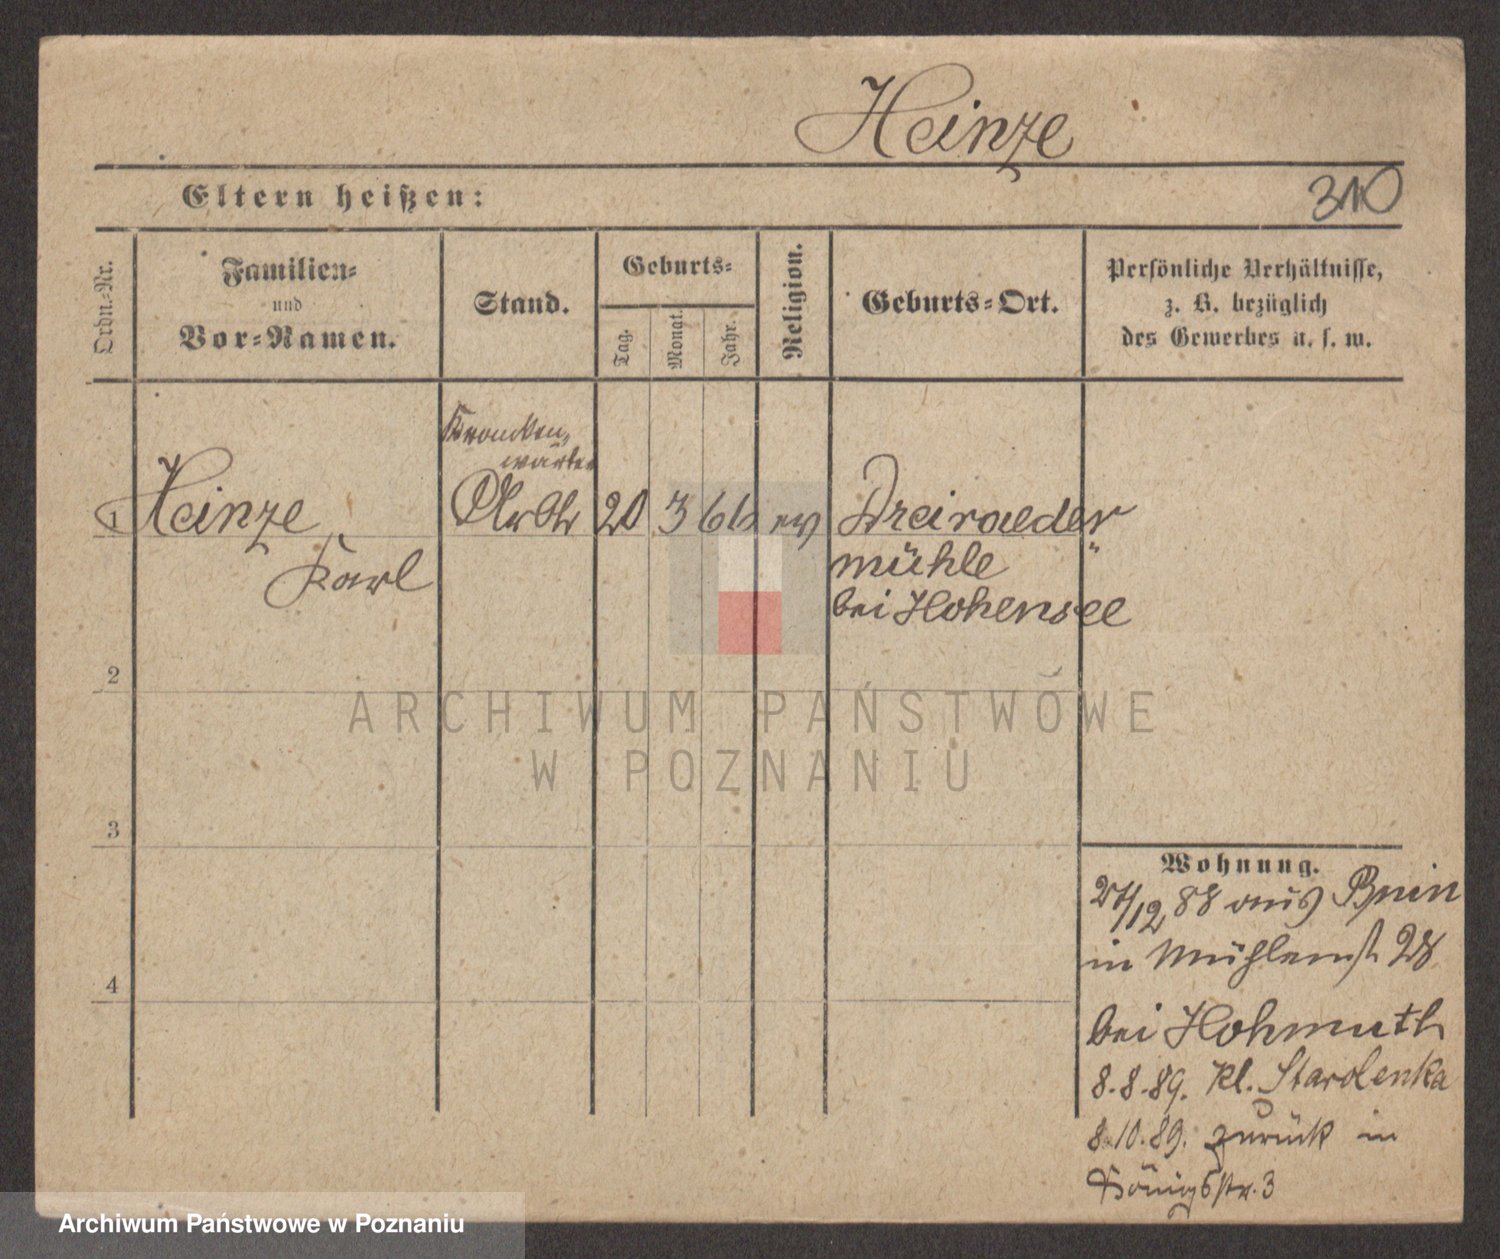 Heinze
Eltern heißen:
310
Ordn.-Nr.
Familien-
und
Vor-Namen.
Stand.
Geburts-
Tag.
Monat.
Jahr.
Religion.
Geburts-Ort.
Persönliche Verhältnisse,
z. B. bezüglich
des Gewerbes u. s. w.
Kranken-
wärter
1 Heinze 20 3 66 ev Dreiraeder
Karl mühle "
bei Hohensee
2
3
4
Wohnung.
27/12 88 aus Bnin
in Mühlenst 28
bei Hohmuth
8.8.89. Kl. Starolenka
8.10.89. zurück in
Königsstr. 3
ARCHIWUM PAŃSTWOWE
W POZNANIU
Archiwum Państwowe w Poznaniu